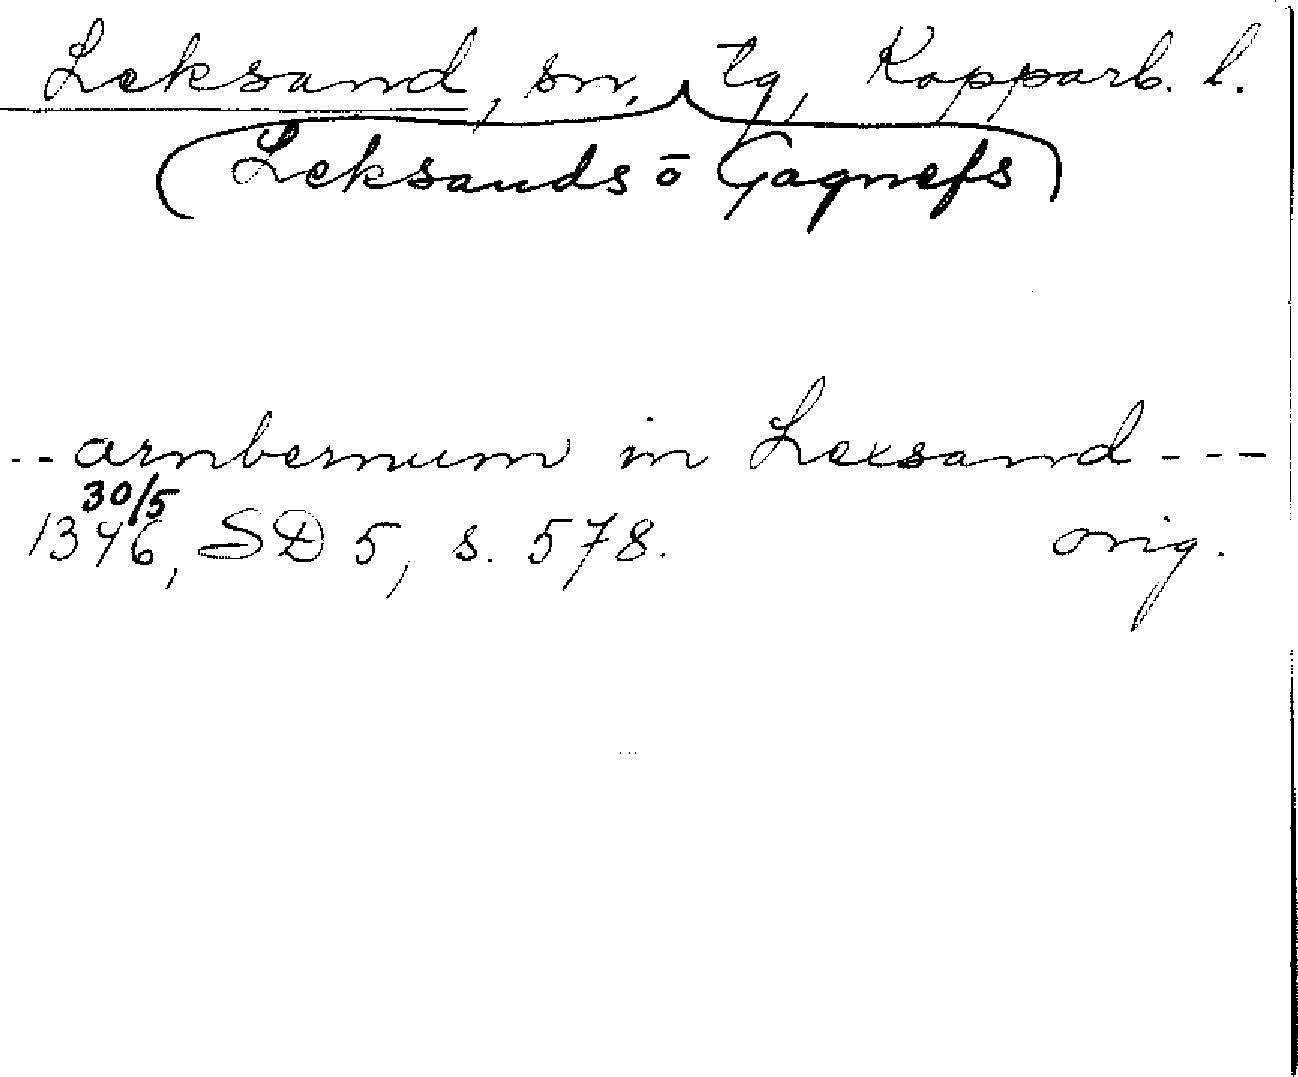 Leksand, sn, tg, Kopparb. l.
Leksands ō Gagnefs
-- arnbernum in Lexsand ---
30/5
1346, SD 5, s. 578. orig.